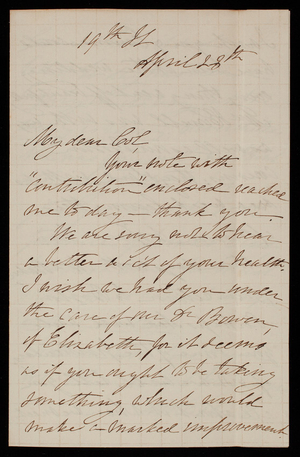 19th St
April 28th
My dear Col,
Your note with
"Contribution" enclosed reached
me to day — thank you.
We are sorry not to hear
a better acct of your health.
I wish we had you under
the care of our Dr Bowen,
of Elizabeth, for it seems
as if you ought to be taking
something, which would
make a marked improvement